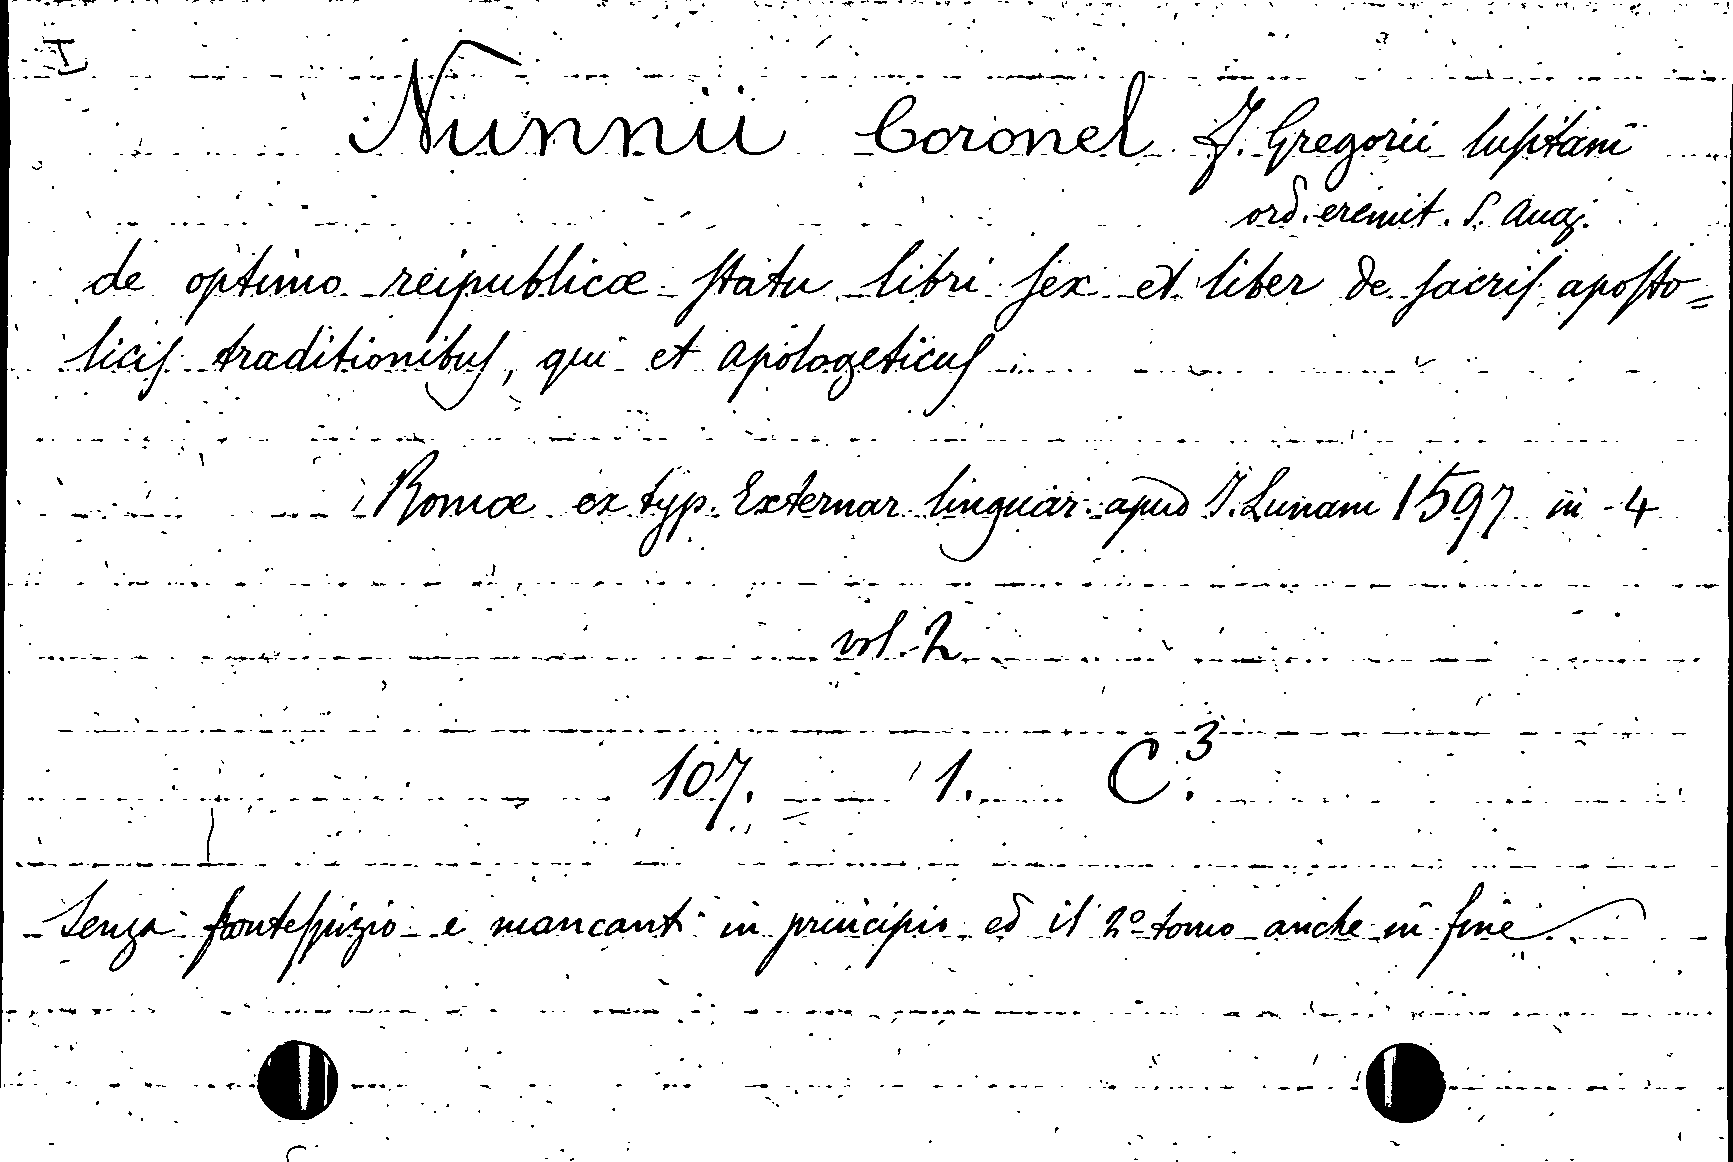 I
Nunnii Coronel F. Gregorii lusitani
ord. eremit. S. Aug.
de optimo reipublicæ statu libri sex et liber de sacris aposto=
licis traditionibus, qui et apologeticus.
Romæ ex typ. Externar. linguar. apud J. Lunam 1597 in-4
vol. 2
107. 1. C.3
Senza frontespizio e mancanti in principio ed il 2º tomo anche in fine